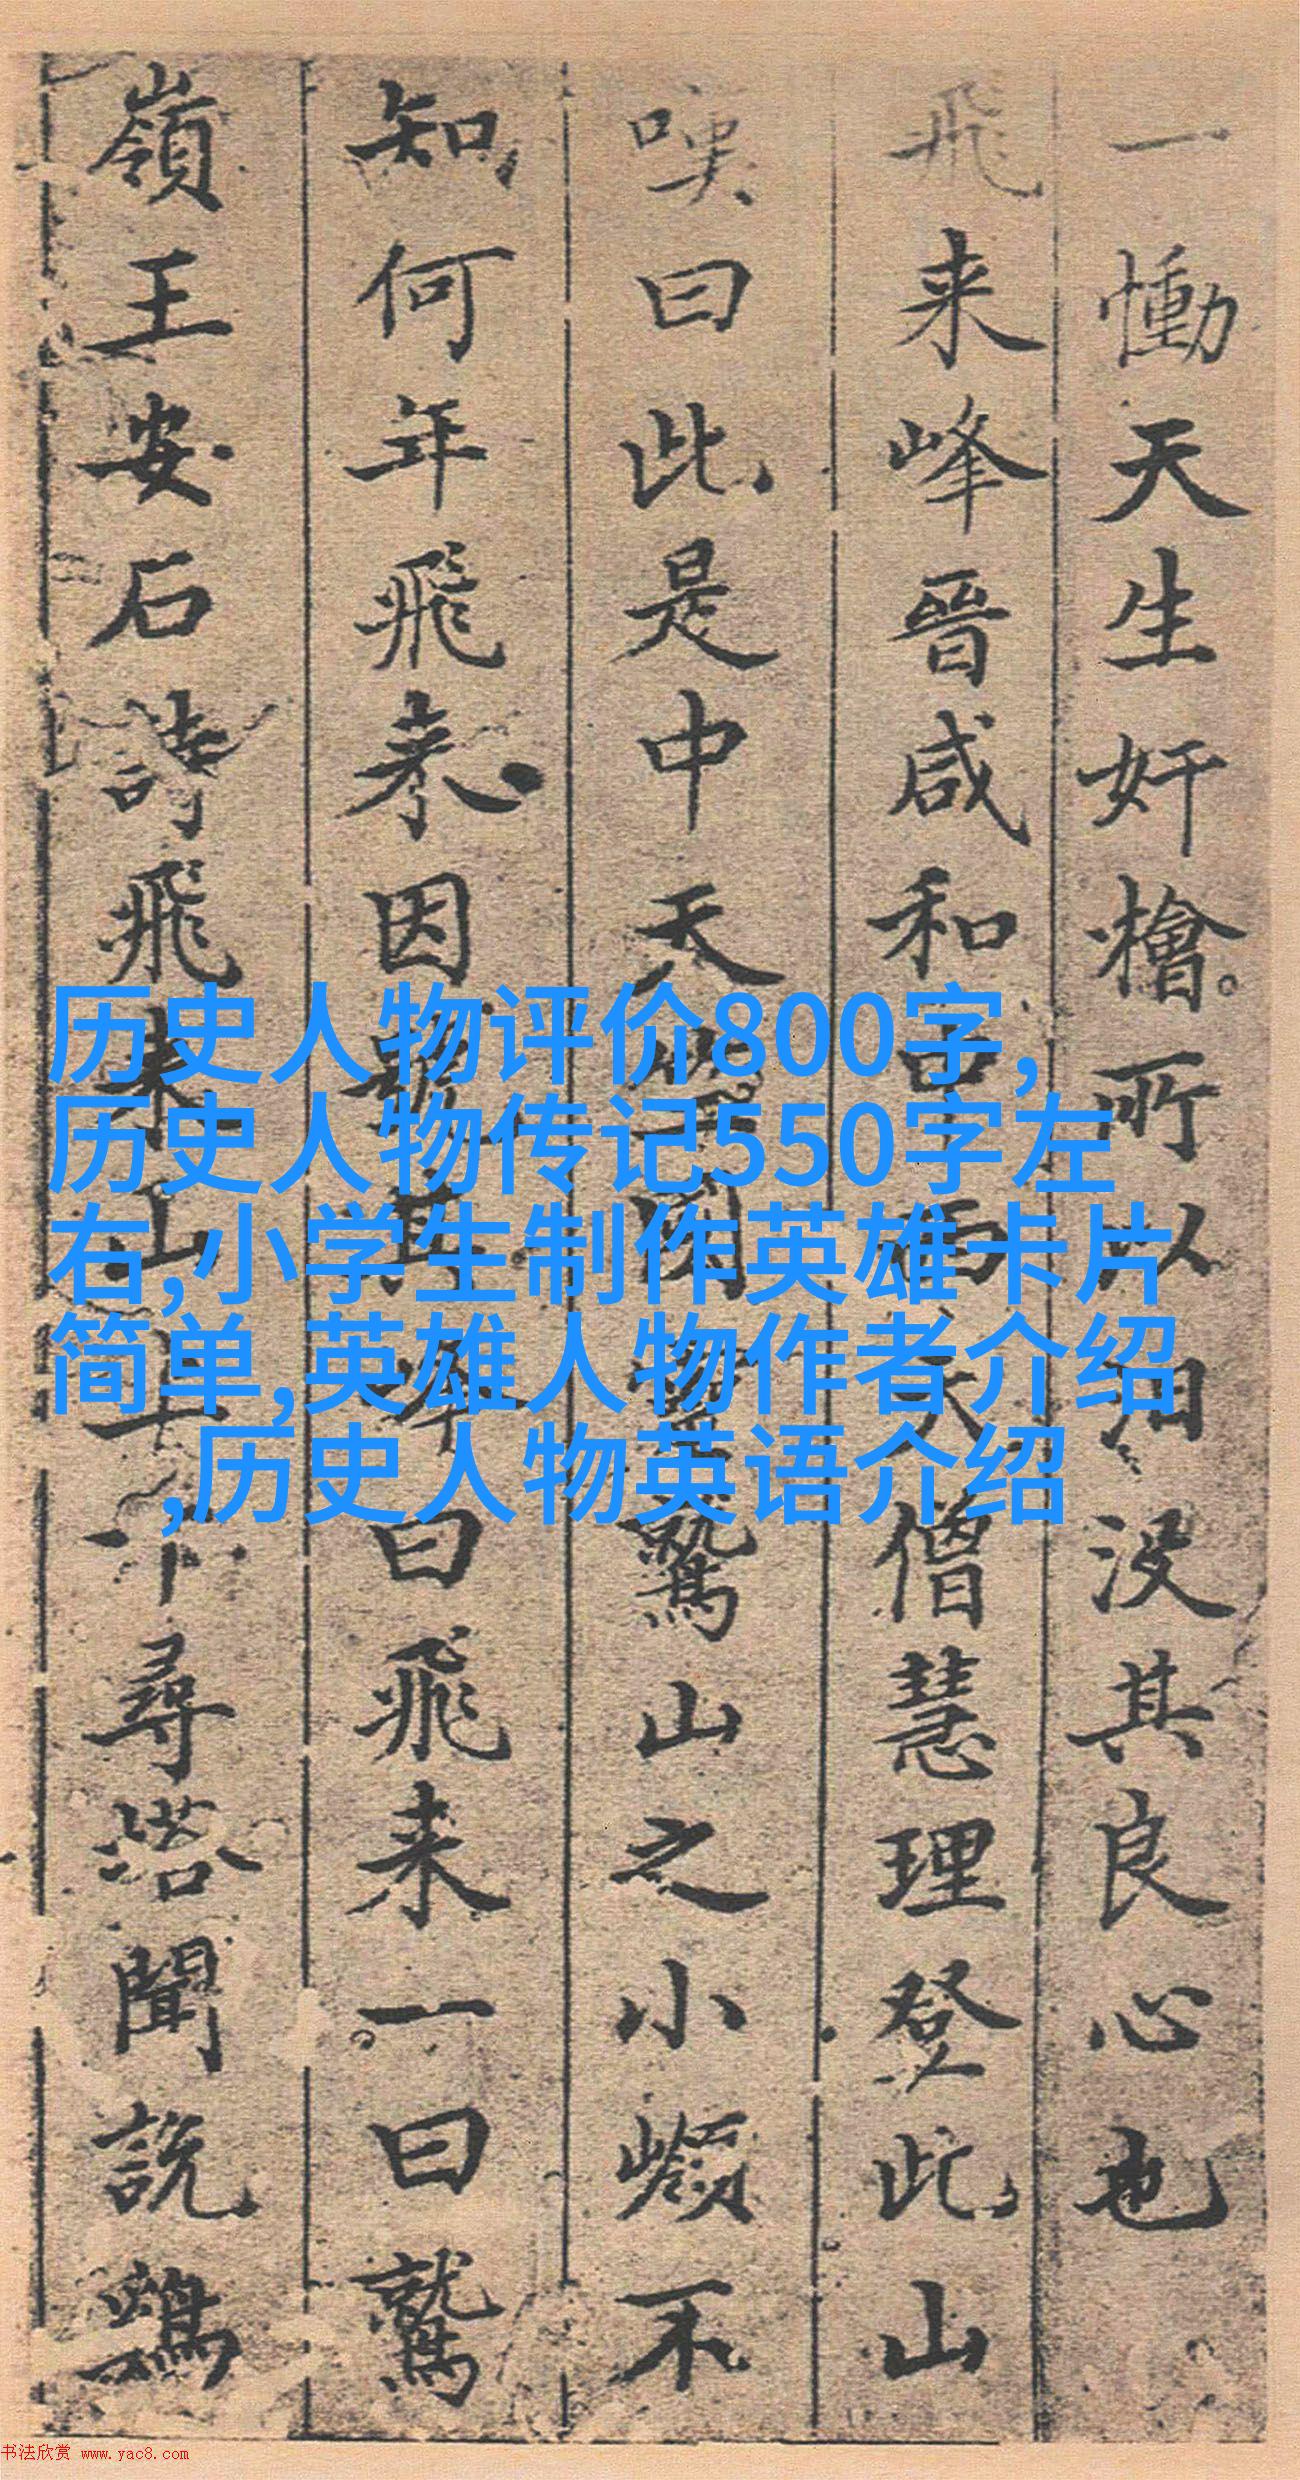 一慟天生奸檜所以汩没其良心也
飛来峰晉咸和中西天僧慧理登此山
嘆曰此是中天竺國鷲山之小嶺不
知何年飛来因號其峰曰飛来一曰鷲
嶺王安石詩飛来山上千尋塔聞説鷄
历史人物评价800字,
历史人物传记550字左
右,小学生制作英雄卡片
简单,英雄人物作者介绍
,历史人物英语介绍
书法欣赏 www.yac8.com